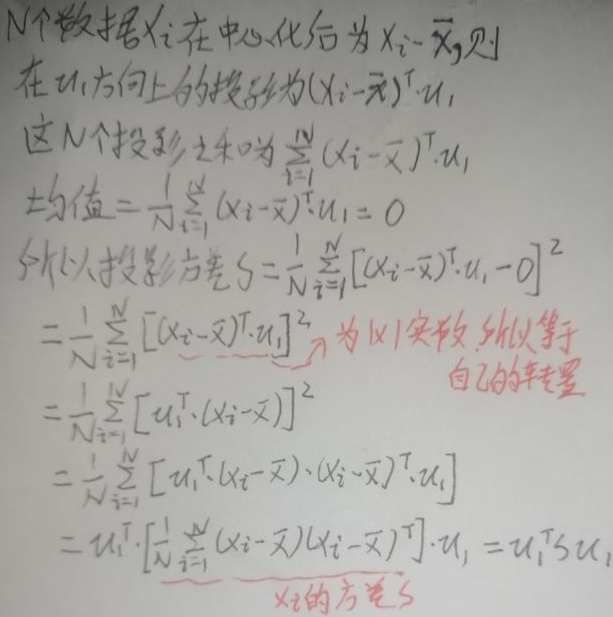 N个数据xᵢ在中心化后为xᵢ-x̄,则
在u₁方向上的投影为(xᵢ-x̄)ᵀ·u₁
这N个投影之和为 ∑ᵢ₌₁ᴺ (xᵢ-x̄)ᵀ·u₁
均值= 1/N ∑ᵢ₌₁ᴺ (xᵢ-x̄)ᵀ·u₁ = 0
所以投影方差S= 1/N ∑ᵢ₌₁ᴺ [(xᵢ-x̄)ᵀ·u₁-0]²
= 1/N ∑ᵢ₌₁ᴺ [(xᵢ-x̄)ᵀ·u₁]² 为1×1实数,所以等于
自己的转置
= 1/N ∑ᵢ₌₁ᴺ [u₁ᵀ·(xᵢ-x̄)]²
= 1/N ∑ᵢ₌₁ᴺ [u₁ᵀ·(xᵢ-x̄)·(xᵢ-x̄)ᵀ·u₁]
= u₁ᵀ·[1/N ∑ᵢ₌₁ᴺ (xᵢ-x̄)(xᵢ-x̄)ᵀ]·u₁ = u₁ᵀSu₁
xᵢ的方差S